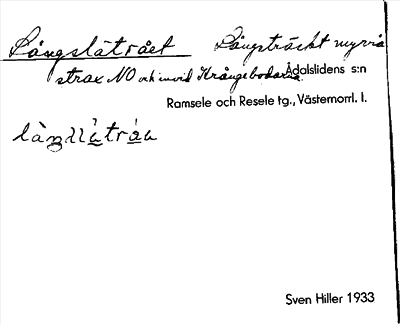 Långslåtrået Långsträckt myrrå
strax NO och invid Krångebodarna Ådalslidens s:n
Ramsele och Resele tg., Västernorrl. l.
Sven Hiller 1933